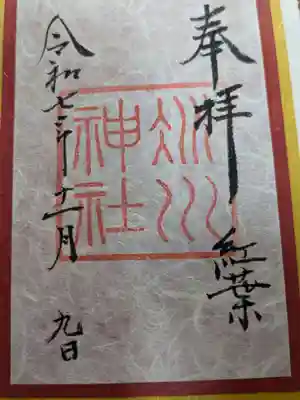 奉拝 紅葉
氷川
神社
令和七年十一月 九日